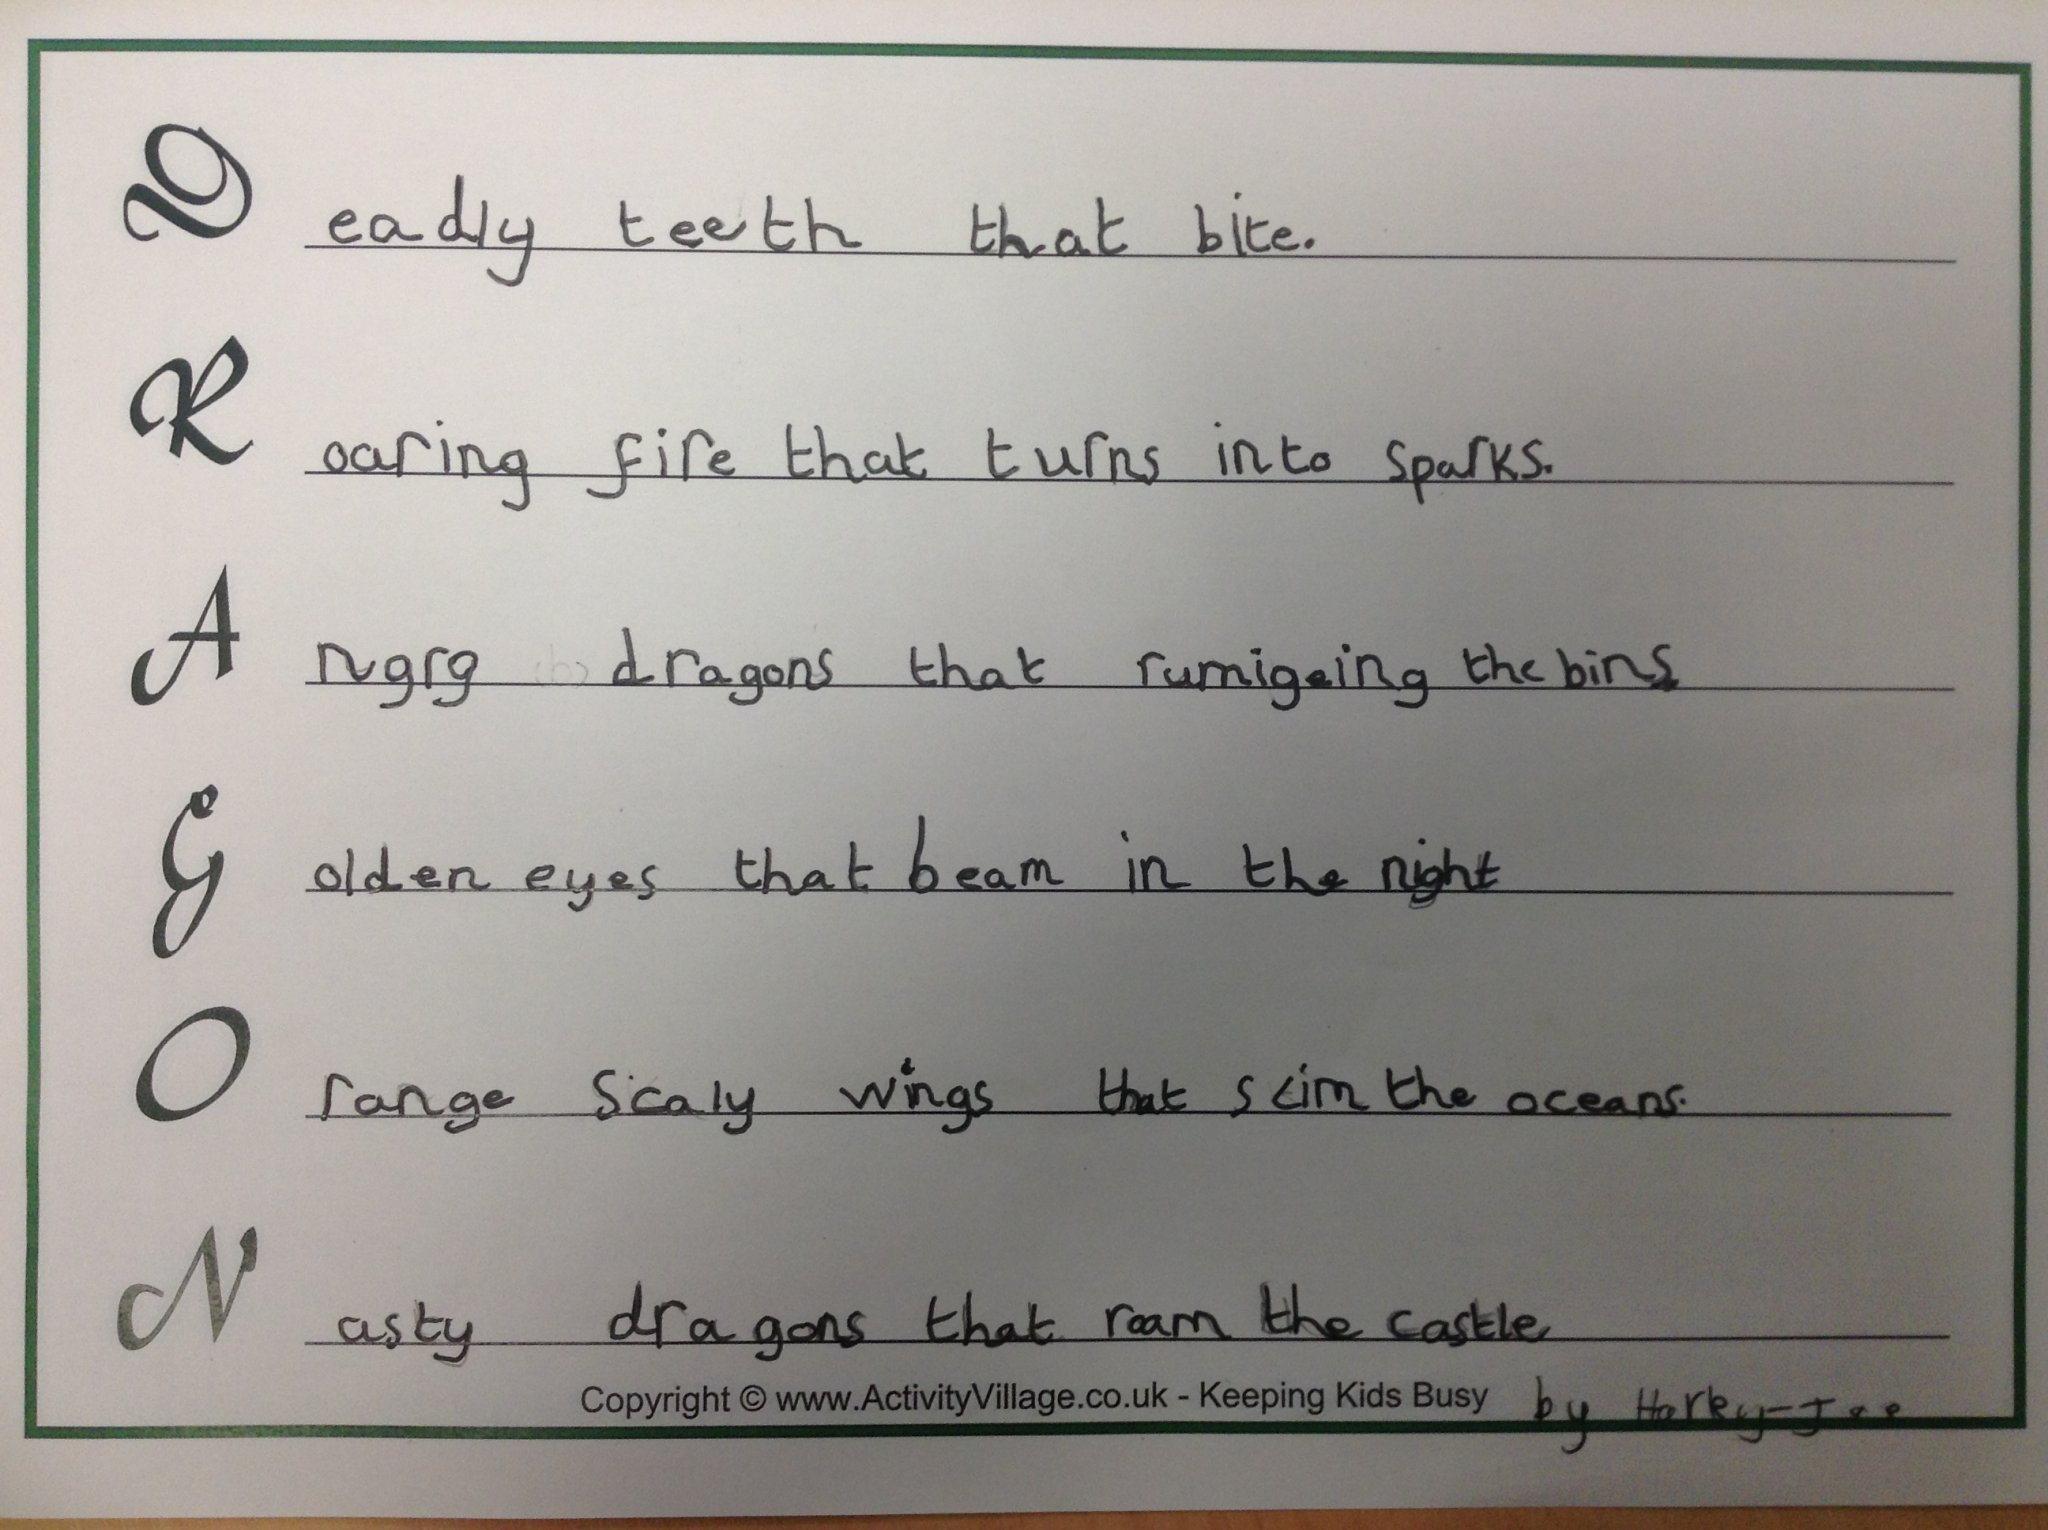 Deadly teeth that bite.
Roaring fire that turns into sparks.
Angrg dragons that rumigeing the bins
Golden eyes that beam in the night
Orange Scaly wings that scim the oceans.
Nasty dragons that roam the castle
Copyright © www.ActivityVillage.co.uk - Keeping Kids Busy by Harley-Joe